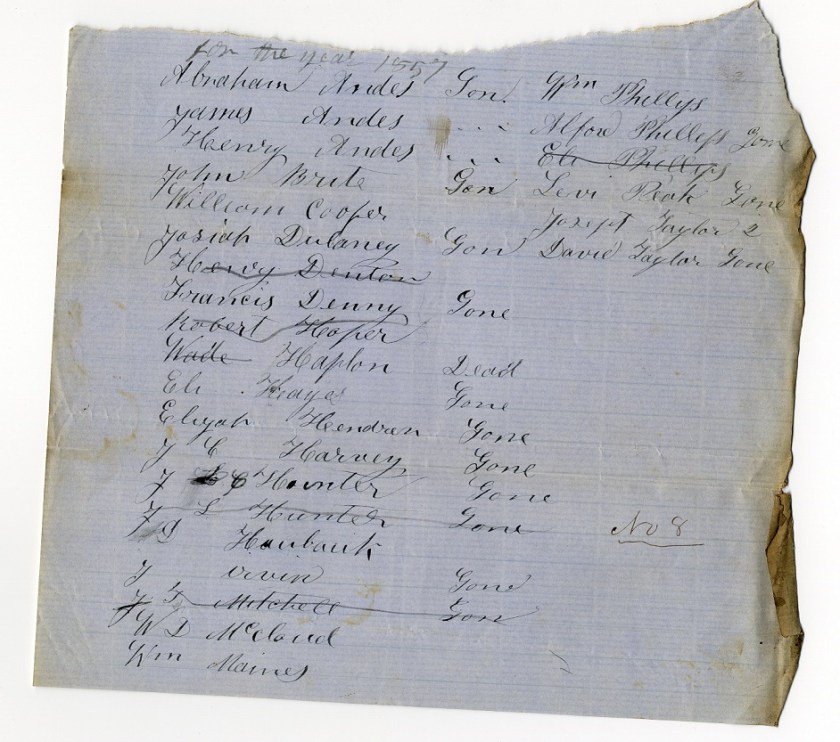 for the year 1857
Abraham Andes Gon. Wm Phillys
James Andes ... Alford Phillips Gone
Henry Andes ... Eli Phillips
John Brite Gon Levi Peak Gone
William Cooper Joseph Taylor 2
Josiah Dulaney Gon David Taylor Gone
Henry Denton
Francis Denny Gone
Robert Hoper
Wade Haplon Dead
Eli Hayes Gone
Eligah Hendren Gone
J C Harvey Gone
J C Hunter Gone
J L Hunter Gone
No 8
J
J Ervin Gone
J T Mitchell Gon
W D McCloud
Wm Maines